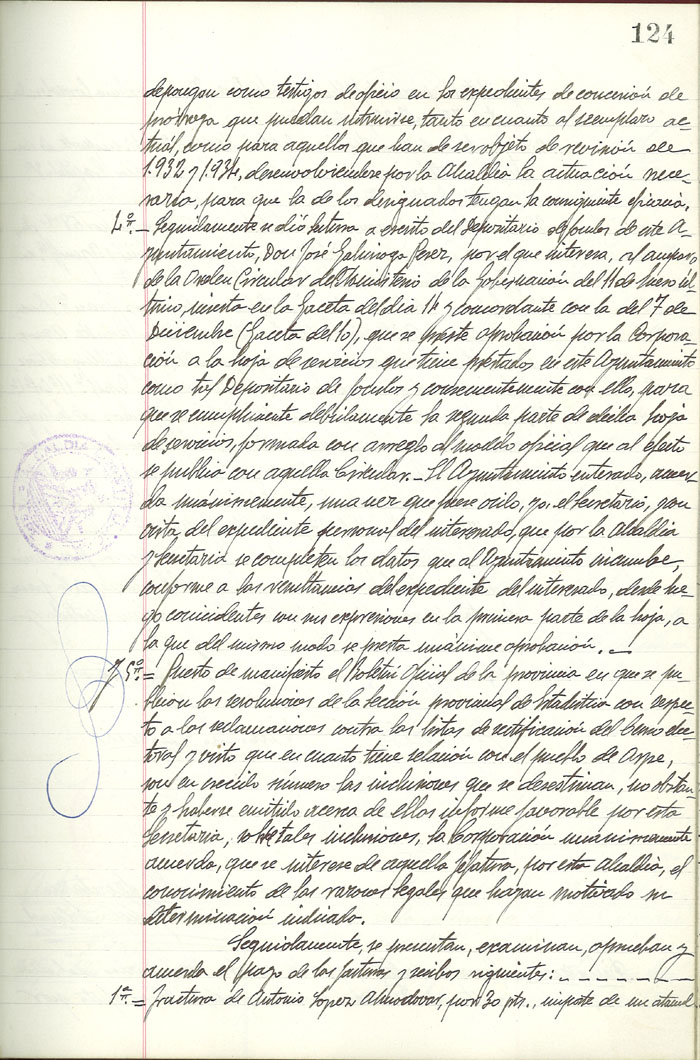 124
depongan como testigos de oficio en los expedientes de concesión de
prórroga que puedan instruirse, tanto en cuanto al reemplazo ac-
tual, como para aquellos que han de ser objeto de revisión de
1.932 y 1.934, desenvolviendose por la Alcaldía la actuación nece-
saria, para que la de los designados tengan la consiguiente eficacia.
4º.- Seguidamente se dió lectura a escrito del Depositario de fondos de este A-
yuntamiento, Don José Galinsoga Perez, por el que interesa, al amparo
de la Orden Circular del Ministerio de la Gobernación del 11 de Enero úl-
timo, inserta en la Gaceta del dia 14 y concordante con la del 7 de
Diciembre (Gaceta del 10), que se preste aprobación por la Corpora-
ción a la hoja de servicios que tiene prestados en este Ayuntamiento
como tal Depositario de fondos y consecuentemente con ello, para
que se cumplimente debidamente la segunda parte de dicha hoja
de servicios, formada con arreglo al modelo oficial que al efecto
se publica con aquella Circular.- El Ayuntamiento enterado, acuer-
da unánimemente, una vez que fuese oido, yo, el Secretario, con
vista, del expediente personal del interesado, que por la Alcaldía
y Secretaría se completen los datos que al Ayuntamiento incumbe,
conforme a las resultancias del expediente del interesado, desde lue-
go coincidentes con sus expresiones en la primera parte de la hoja, a
la que del mismo modo se presta unánime aprobación.-
y 5º.= Puesto de manifiesto el Boletín Oficial de la provincia en que se pu-
blican las resoluciones de la Sección provincial de Estadística con respec-
to a las reclamaciones contra las listas de rectificación del Censo elec-
toral y visto que en cuanto tiene relación con el pueblo de Aspe,
son en crecido número las inclusiones que se desestiman, no obstan-
te y haberse emitido acerca de ellas informe favorable por esta
Secretaría, sobre tales inclusiones, la Corporación unánimemente
acuerda, que se interese de aquella Jefatura, por esta Alcaldía, el
conocimiento de las razones legales que hayan motivado su
determinación indicada.
Seguidamente, se presentan, examinan, aprueban y
acuerda el pago de las facturas y recibos siguientes: - - - - - -
1ª.= Fractura de Antonio Lopez Almodovar, por 30 pts., importe de un ataud